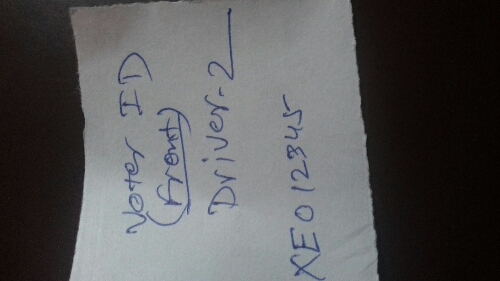 Voter ID
(Front)
Driver-2
XE012345